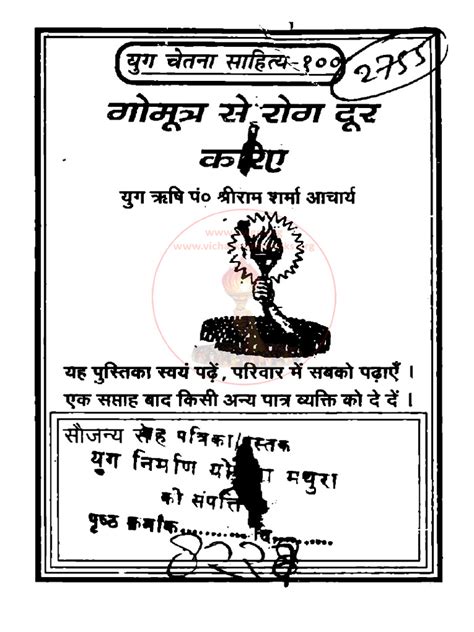 युग चेतना साहित्य-१००
2755
गोमूत्र से रोग दूर
करिए
युग ऋषि पं० श्रीराम शर्मा आचार्य
यह पुस्तिका स्वयं पढ़ें, परिवार में सबको पढ़ाएँ ।
एक सप्ताह बाद किसी अन्य पात्र व्यक्ति को दे दें ।
सौजन्य से
यह पत्रिका/पुस्तक
युग निर्माण मथुरा
की संपत्ति
पृष्ठ क्रमांक